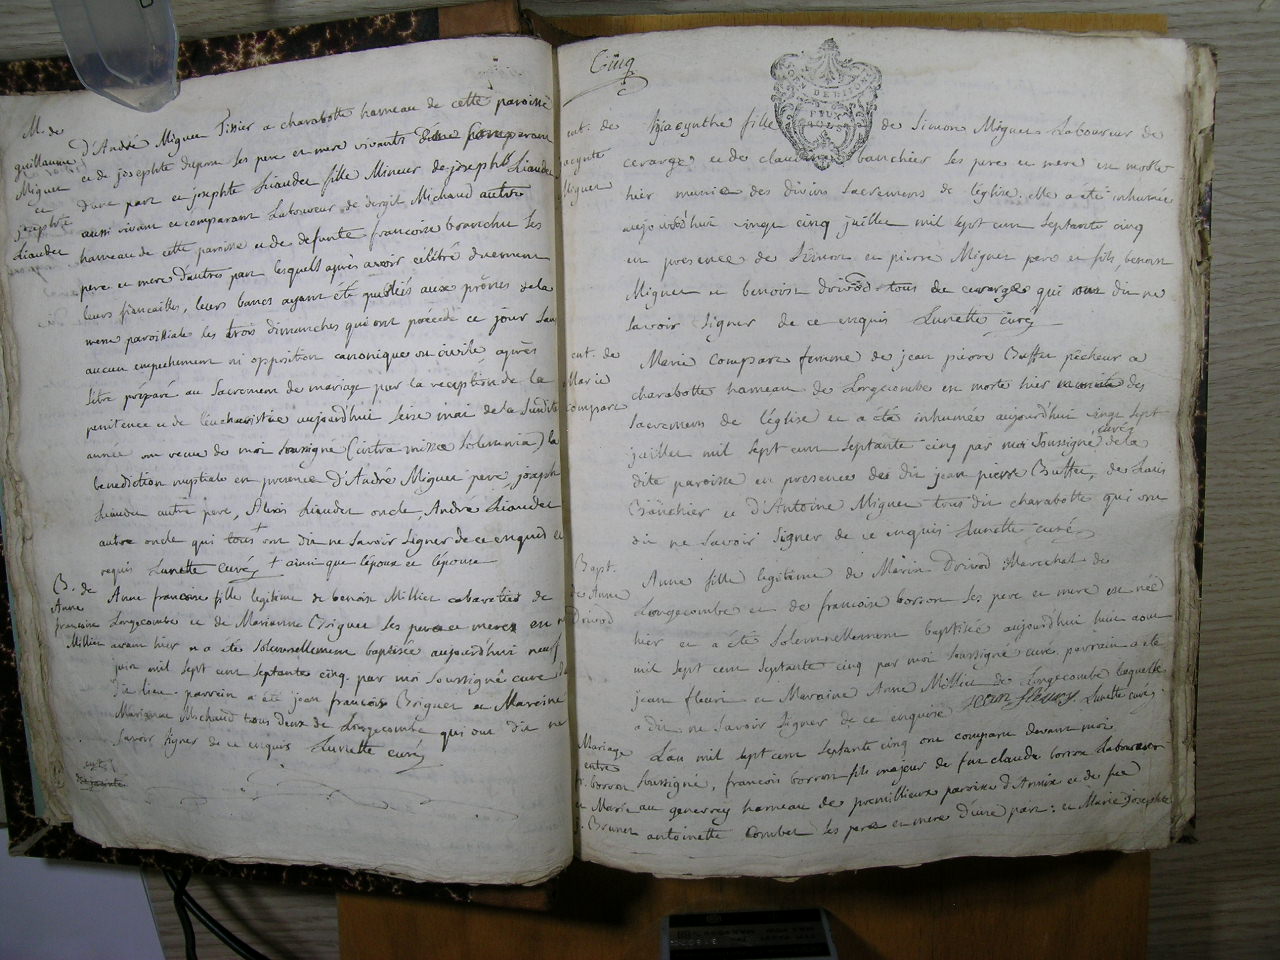 M. de
guillaume
Miguet
et
josephte
Liaudet
d'André Miguet Tissier a charabotte hameau de cette paroisse
et de josephte dupont ses pere et mere vivants comparant
d'une part et josephte Liaudet fille Mineur de joseph Liaudet
aussi vivant et comparant Laboureur de Michaud autre
hameau de cette paroisse et de defunte francoise branchu ses
pere et mere d'autres part lesquels après avoir célébré duement
leurs fiancailles, leurs bancs ayant été publiés aux prônes de la
messe paroissiale les trois dimanches qui ont précédé ce jour sans
aucun empechement ni opposition canonique ou civile après
s'être préparé au Sacrement de mariage par la reception de la
penitence et de l'eucharistie aujourd'hui seise mai de la susdite
année ont recue de moi soussigné (intra missæ solemnia) la
benediction nuptiale en presence d'André Miguet pere, joseph
Liaudet autre pere, Liaudet oncle, André Liaudet
autre oncle qui tous ont dit ne savoir signer de ce enquis et
requis Lunette curé + ainsi que l'époux et l'épouse
B. de
Anne
francoise
Milliet
Anne francoise fille legitime de benoit Milliet cabaretier de
Longecombe et de Marianne Briguet ses pere et meres est né
avant hier et a été solemnellement baptisée aujourd'hui neuf
juin mil sept cent septante cinq par moi soussigné curé du
dit lieu parrein a été jean francois Briguet et Mareine
Marianne Michaud tous deux de Longecombe qui ont dit ne
savoir signer de ce enquis Lunette curé
Cinq
ent. de
hyacynte
Miguet
hiacynthe fille de Simon Miguet Laboureur de
cerarge et de claudine banchier ses pere et mere est morte
hier munie des divins sacremens de l'église elle a été inhumée
aujourd'hui vingt cinq juillet mil sept cent septante cinq
en presence de Simon et pierre Miguet pere et fils, benoit
Miguet et benoist drivod tous de cerarge qui ont dit ne
savoir signer de ce enquis Lunette curé
ent. de
Marie
compare
Marie Compare femme de jean pierre Buffet pêcheur a
charabotte hameau de Longecombe est morte hier munie des
sacremens de l'église et a été inhumée aujourd'hui vingt sept
juillet mil sept cent septante cinq par moi soussigné curé de la
dite paroisse en presence des dit jean pierre Buffet, de Louis
Banchier et d'Antoine Miguet tous dit charabotte qui ont
dit ne savoir signer de ce enquis Lunette curé
Bapt.
de Anne
Drivod
Anne fille legitime de Marin Drivod Marechal de
Longecombe et de francoise borron ses pere et mere est née
hier et a été solemnellement baptisée aujourd'hui huit aout
mil sept cent septante cinq par moi soussigné curé, parrain a été
jean fleuri et Maraine Anne Milliet de Longecombe laquelle
a dit ne savoir signer de ce enquise jean fleury Lunette curé
Mariage
entre
fr. borron
et Marie
j. Brunet
L'an mil sept cent septante cinq ont comparu devant moi
soussigné, francois borron fils majeur de feu claude borron Laboureur
au genevrey hameau de premillieux paroisse d'Armix et de feue
antoinette combet ses pere et mere d'une part : et Marie josephte